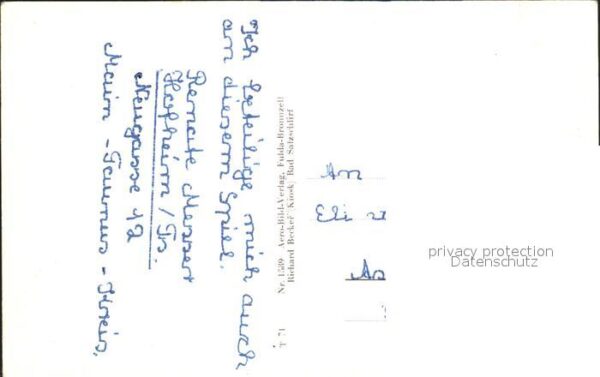 Ich beteilige mich auch
am diesem Spiel.
Renate Messert
Hofheim / Ts.
Neugasse 12
Main - Taunus - Kreis.
T 71 Nr. 1589 Aero-Bild-Verlag, Fulda-Bronnzell
Richard Becker Kiosk, Bad Salzschlirf
An
Eli
privacy protection
Datenschutz